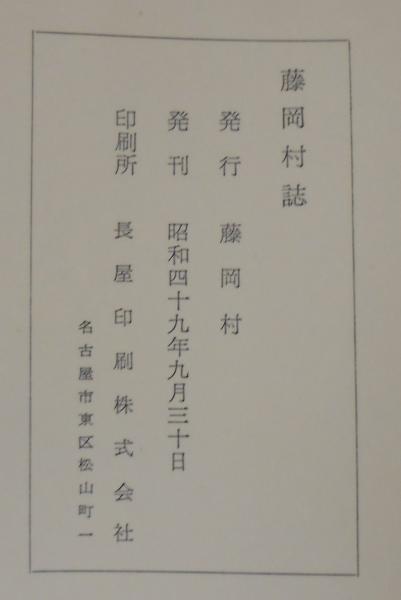 藤岡村誌
発行 藤岡村
発刊 昭和四十九年九月三十日
印刷所 長屋印刷株式会社
名古屋市東区松山町一